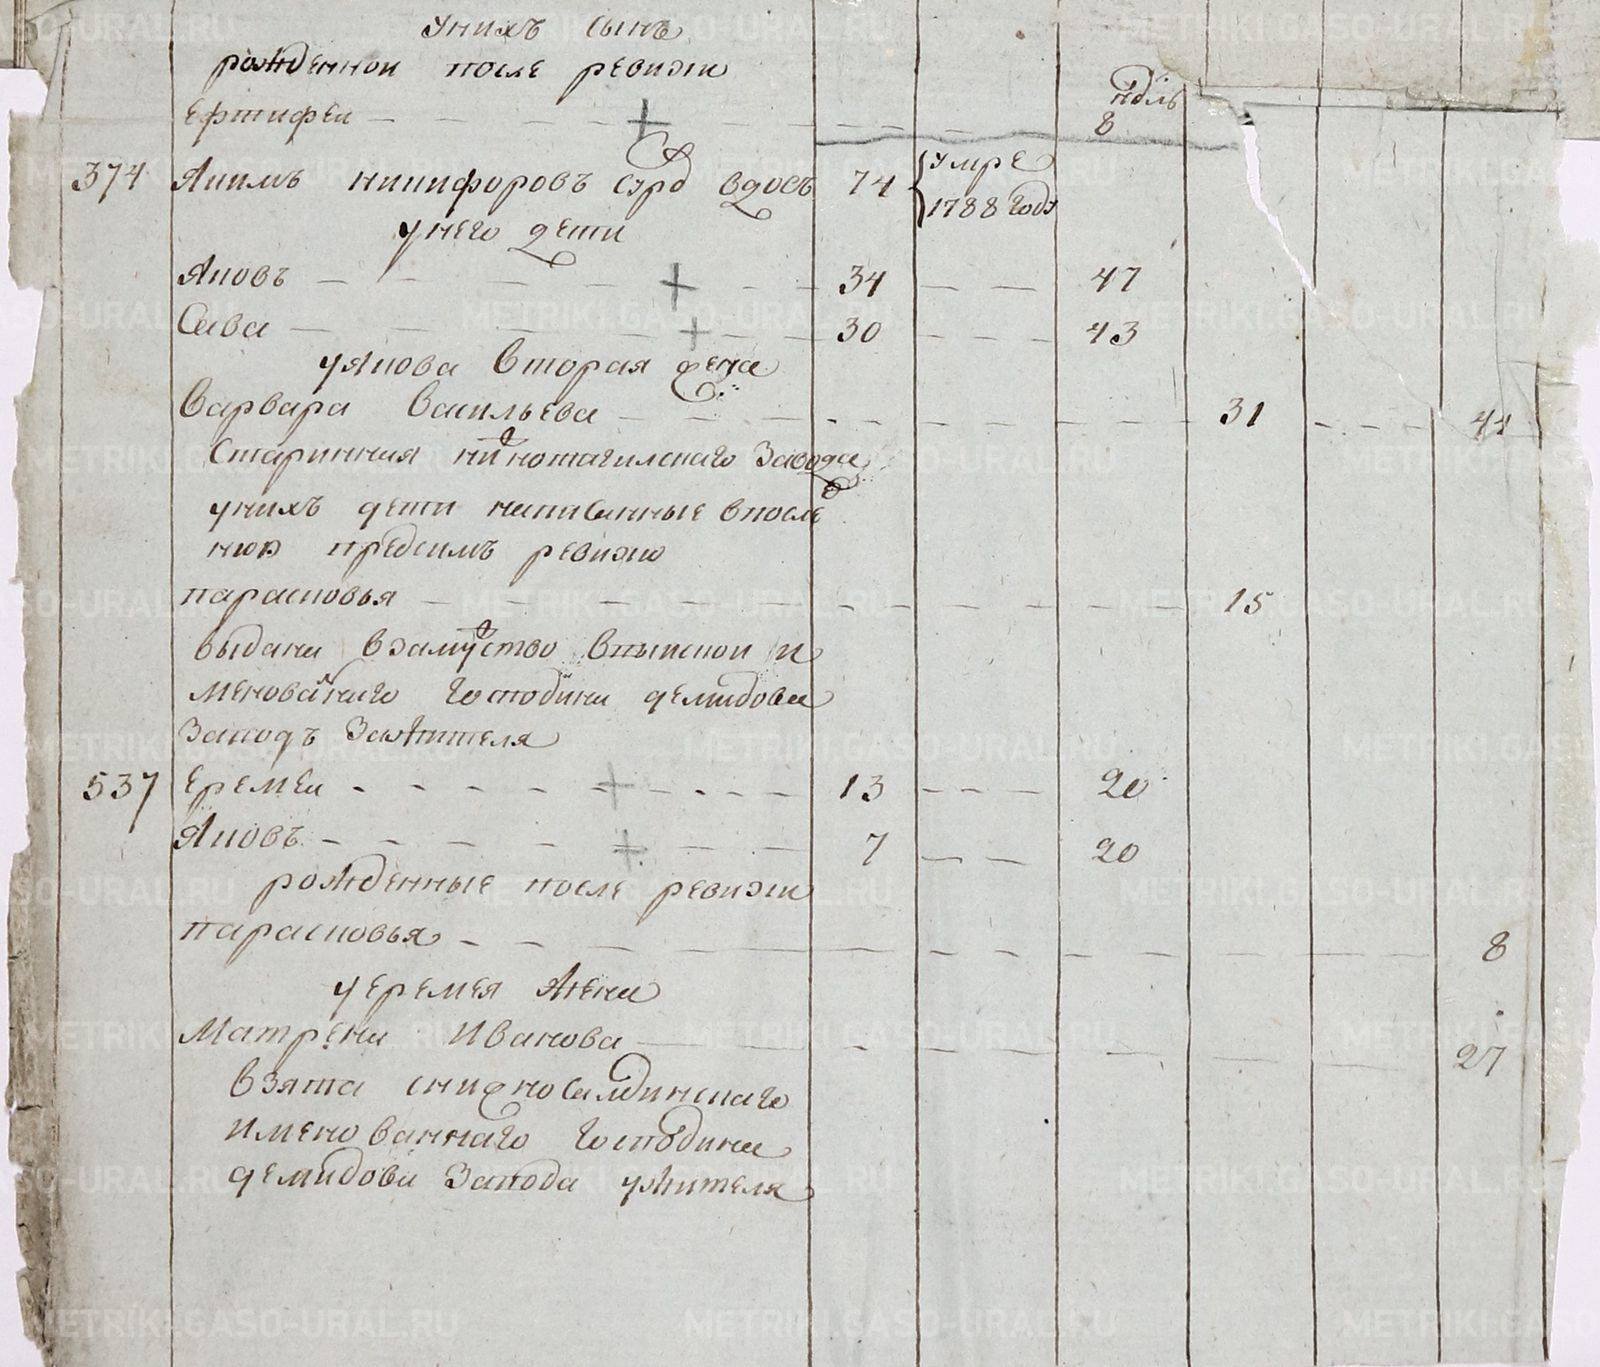 унихъ сынъ
рожденнои после ревизіи
Ефтифеи
ндль
8
374 Якимъ никифоровъ вдовъ 74 умре
1788 году
унего дети
Яковъ 34 47
Сава 30 43
уякова вторая жена
Варвара васильева 31 44
Старинная нижнотагилскаго завода
унихъ дети написанные впосле
нюю предсимъ ревизію
парасковья 15
выдана взамужство
менованнаго господина демидова
заводъ зажителя
537 Еремеи 13 20
Яковъ 7 20
рожденные после ревизіи
парасковья 8
уеремея жена
Матрена Иванова 27
взята снижносалдинскаго
именованнаго господина
демидова завода ужителя
METRIKI.GASO-URAL.RU